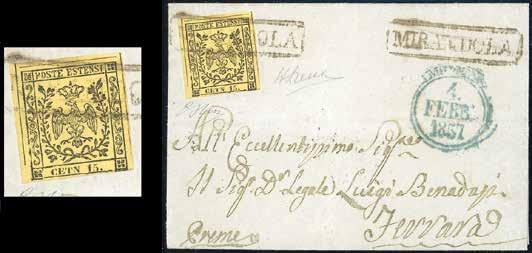 POSTE ESTENSI
CETN 15.
POSTE ESTENSI
CETN 15.
OLA
MIRANDOLA
4
FEBB.
1857
All' Eccellentissimo Sigr
Il Sigr Dr Legale Luigi Benadusi
Ferrara
Preme